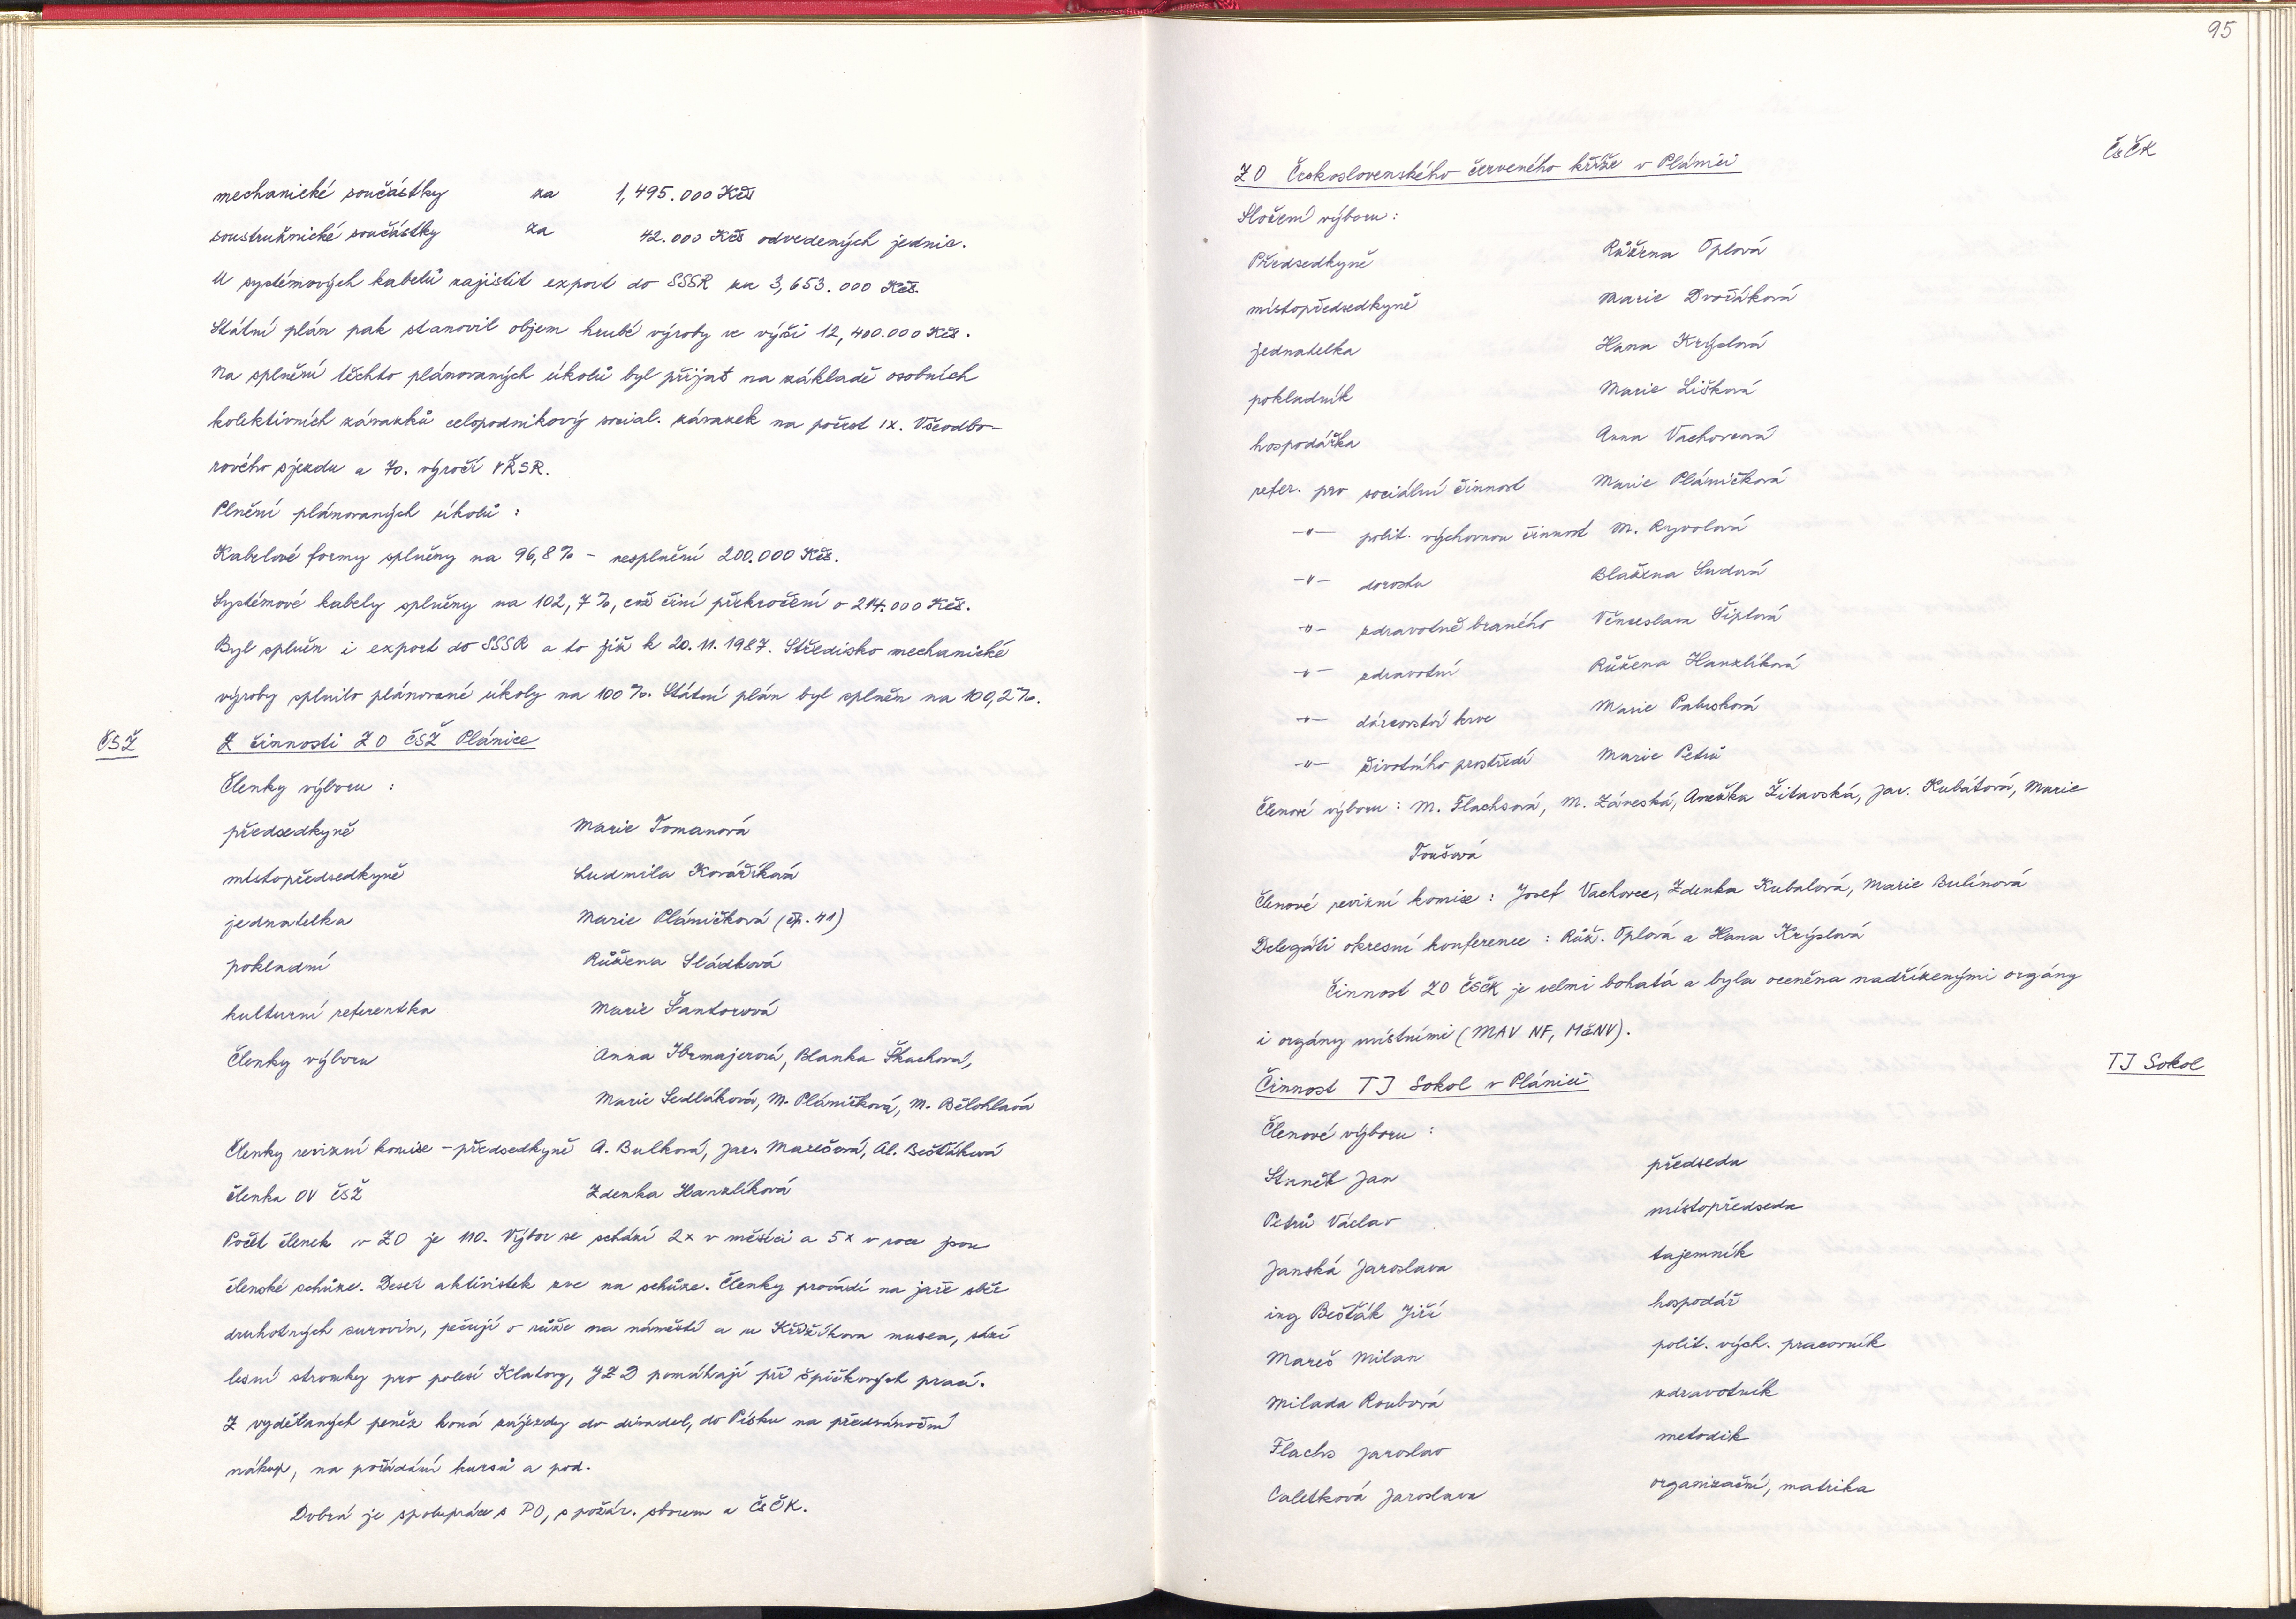 mechanické součástky za 1,495.000 Kčs
soustružnické součástky za 42.000 Kčs odvedených jednic.
U systémových kabelů zajistit export do SSSR za 3,653.000 Kčs.
Státní plán pak stanovil objem hrubé výroby ve výši 12,400.000 Kčs.
Na splnění těchto plánovaných úkolů byl přijat na základě osobních
kolektivních závazků celopodnikový social. závazek na počest IX. Všeodbo-
rového sjezdu a 70. výročí VŘSR.
Plnění plánovaných úkolů :
Kabelové formy splněny na 96,8% - nesplnění 200.000 Kčs.
Systémové kabely splněny na 102,7%, což činí překročení o 214.000 Kčs.
Byl splněn i export do SSSR a to již k 20.11.1987. Středisko mechanické
výroby splnilo plánované úkoly na 100%. Státní plán byl splněn na 100,2%.
ČSŽ
Z činnosti ZO ČSŽ Plánice
Členky výboru :
předsedkyně Marie Tomanová
místopředsedkyně Ludmila Kovaříková
jednatelka Marie Pláničková (čp. 41)
pokladní Růžena Sládková
kulturní referentka Marie Šantorová
Členky výboru Anna Ibrmajerová, Blanka Škachová,
Marie Sedláková, M. Pláničková, M. Bělohlavá
Členky revizní komise - předsedkyně A. Bulková, Jar. Marešová, Al. Bešťáková
členka OV ČSŽ Zdenka Hanzlíková
Počet členek v ZO je 110. Výbor se schází 2x v měsíci a 5x v roce jsou
členské schůze. Deset aktivistek zve na schůze. Členky provádí na jaře sběr
druhotných surovin, pečují o růže na náměstí a u Křižíkova musea, sází
lesní stromky pro polesí Klatovy, JZD pomáhají při špičkových prací.
Z vydělaných peněz koná zájezdy do divadel, do Písku na předvánoční
nákup, na pořádání kursů a pod.
Dobrá je spolupráce s PO, s požár. sborem a ČsČK.
95
ČsČK
ZO Československého červeného kříže v Plánici
Složení výboru :
Předsedkyně Růžena Oplová
místopředsedkyně Marie Dvořáková
jednatelka Hana Krýslová
pokladník Marie Lišková
hospodářka Anna Vachovcová
refer. pro sociální činnost Marie Pláničková
-"- polit. výchovnou činnost M. Ryvolová
-"- dorostu Blažena Sudová
-"- zdravotně branného Věnceslava Šiplová
-"- zdravotní Růžena Hanzlíková
-"- dárcovství krve Marie Pabusková
-"- životního prostředí Marie Petrů
Členové výboru : M. Flachsová, M. Záveská, Anežka Žitavská, Jar. Kubátová, Marie
Toušová
Členové revizní komise : Josef Vachovec, Zdenka Kubalová, Marie Bulínová
Delegáti okresní konference : Růž. Oplová a Hana Krýslová
Činnost ZO ČSČK je velmi bohatá a byla oceněna nadřízenými orgány
i orgány místními (MAV NF, MěNV).
TJ Sokol
Činnost TJ Sokol v Plánici
Členové výboru :
Staněk Jan předseda
Petrů Václav místopředseda
Janská Jaroslava tajemník
ing Bešťák Jiří hospodář
Mareš Milan polit. vých. pracovník
Milada Roubová zdravotník
Flachs Jaroslav metodik
Caletková Jaroslava organizační, matrika